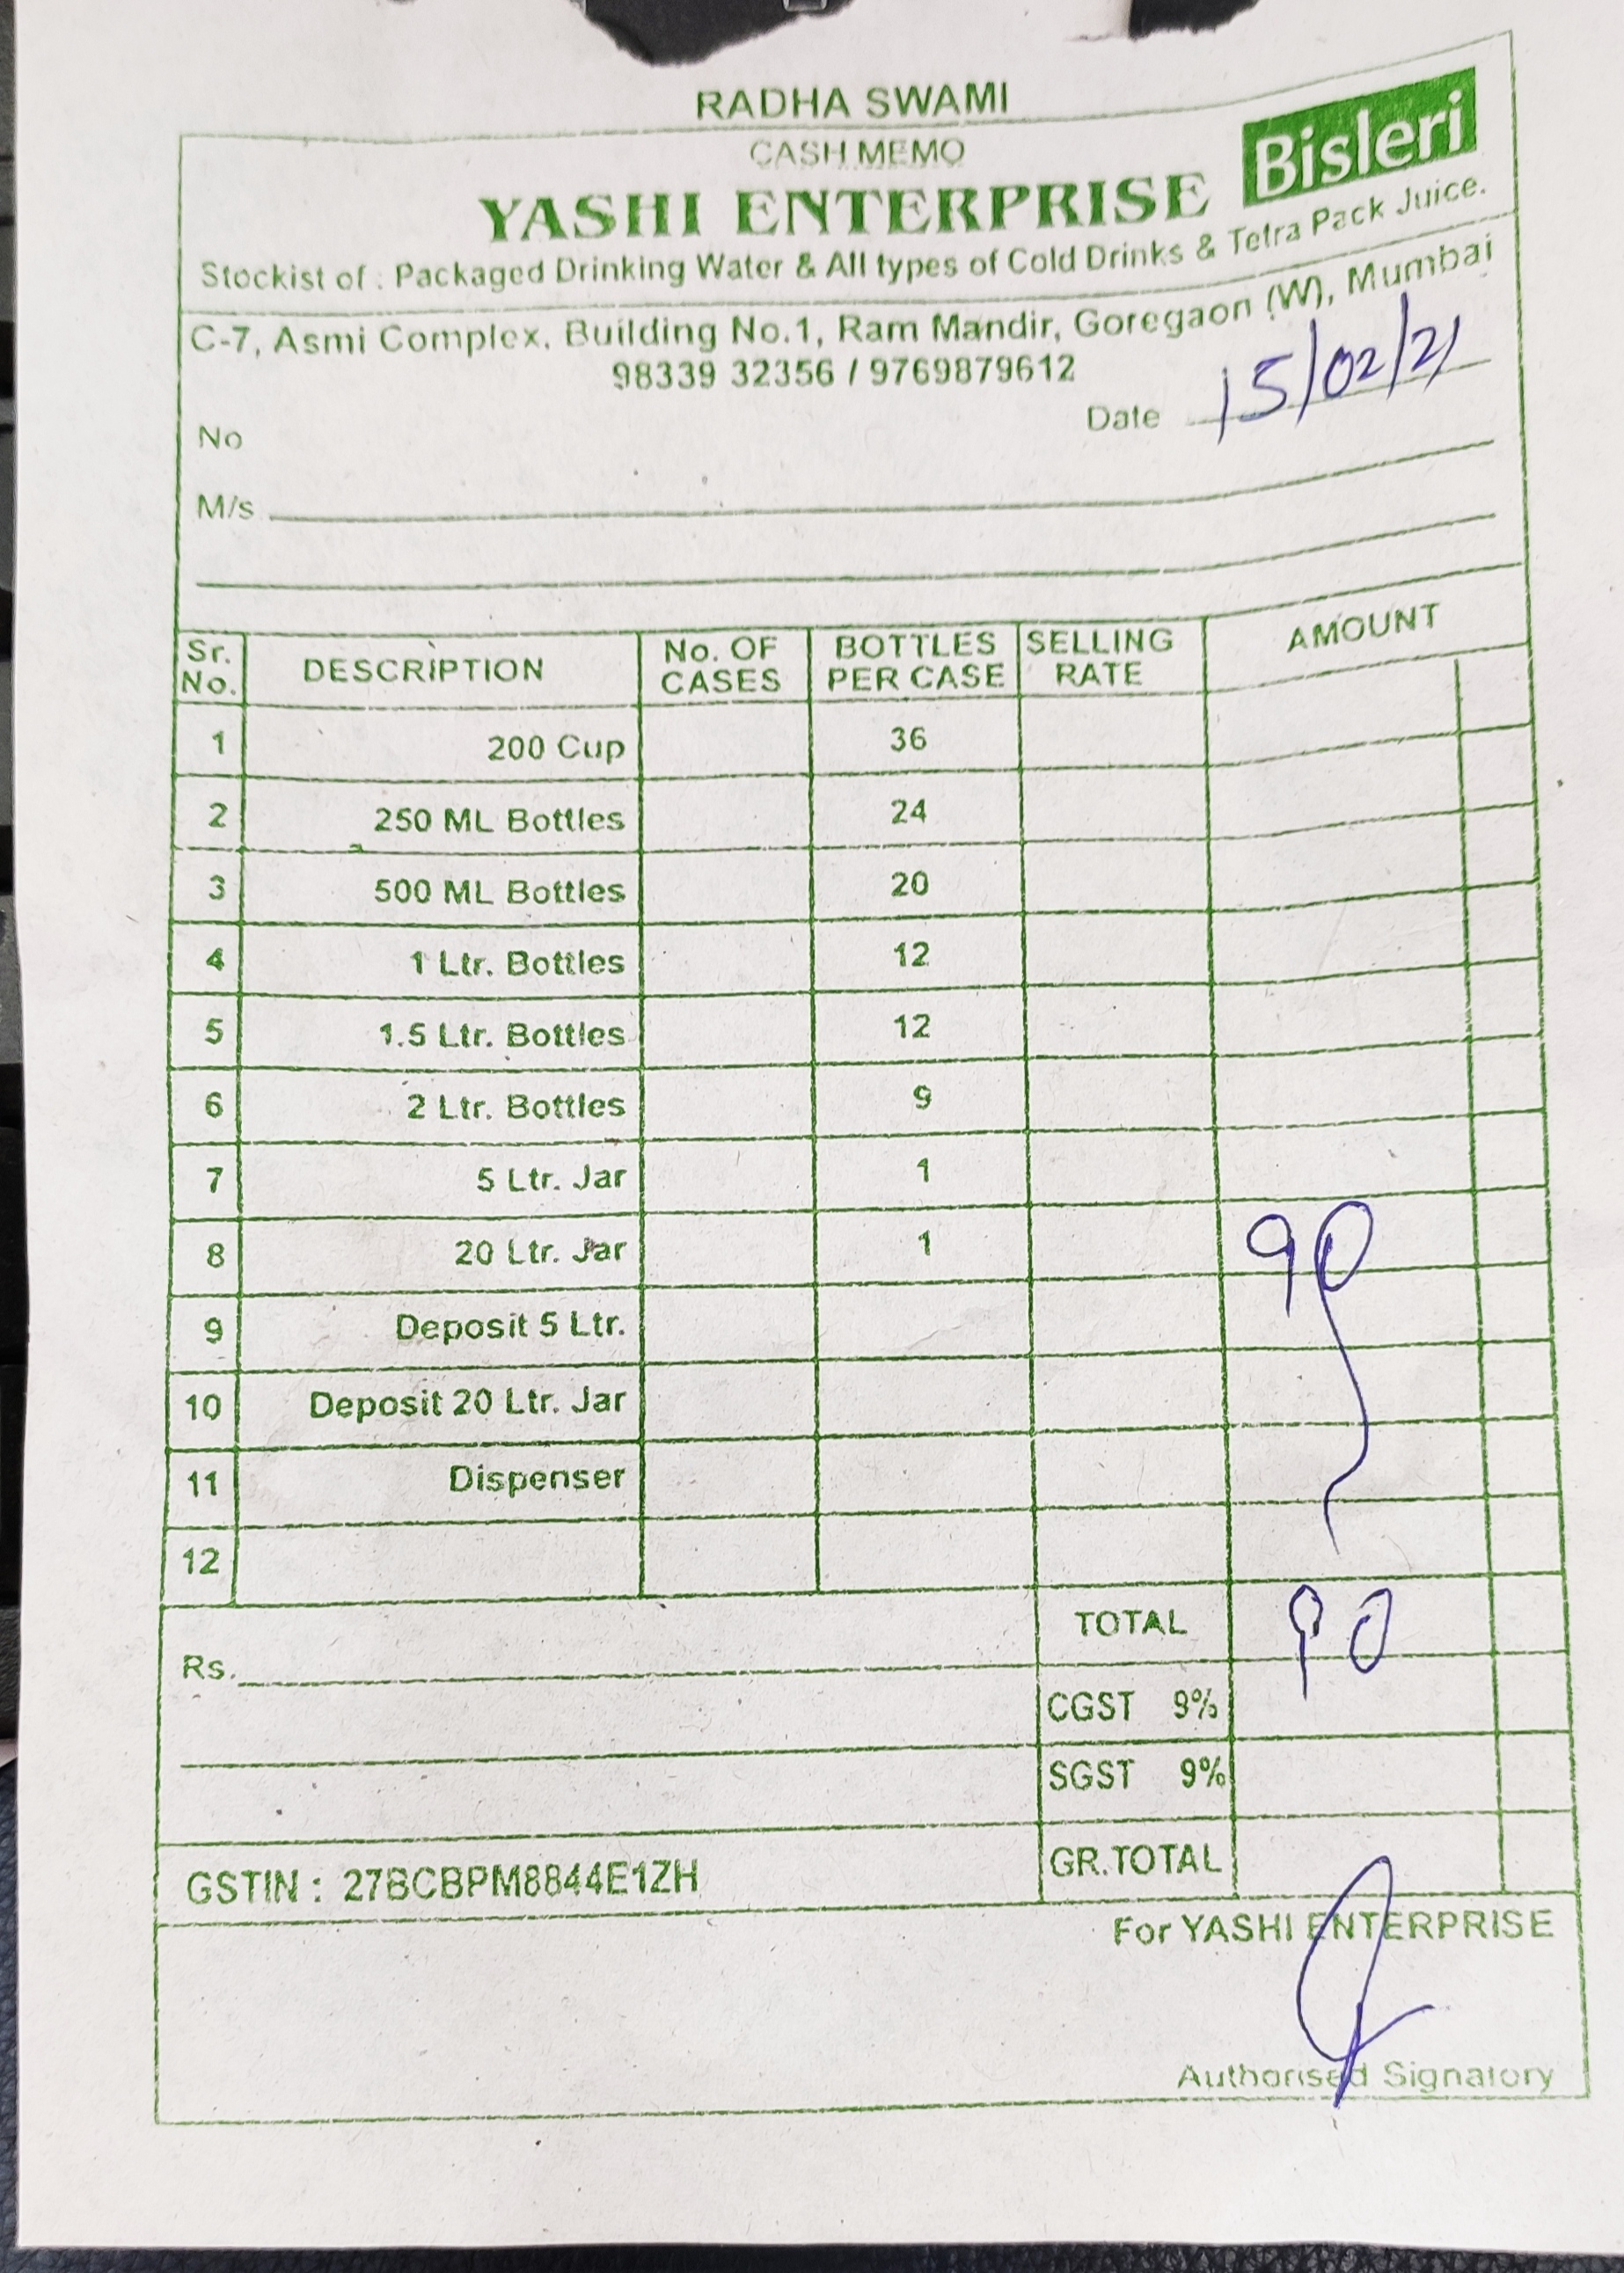 RADHA SWAMI
CASH MEMO
YASHI ENTERPRISE Bisleri
Stockist of : Packaged Drinking Water & All types of Cold Drinks & Tetra Pack Juice.
C-7, Asmi Complex, Building No.1, Ram Mandir, Goregaon (W), Mumbai
98339 32356 / 9769879612
No
Date 15/02/21
M/s
Sr. No. DESCRIPTION No. OF CASES BOTTLES PER CASE SELLING RATE AMOUNT
1 200 Cup 36
2 250 ML Bottles 24
3 500 ML Bottles 20
4 1 Ltr. Bottles 12
5 1.5 Ltr. Bottles 12
6 2 Ltr. Bottles 9
7 5 Ltr. Jar 1
8 20 Ltr. Jar 1 90
9 Deposit 5 Ltr.
10 Deposit 20 Ltr. Jar
11 Dispenser
12
TOTAL 90
Rs.
CGST 9%
SGST 9%
GSTIN : 27BCBPM8844E1ZH GR.TOTAL
For YASHI ENTERPRISE
Authorised Signatory